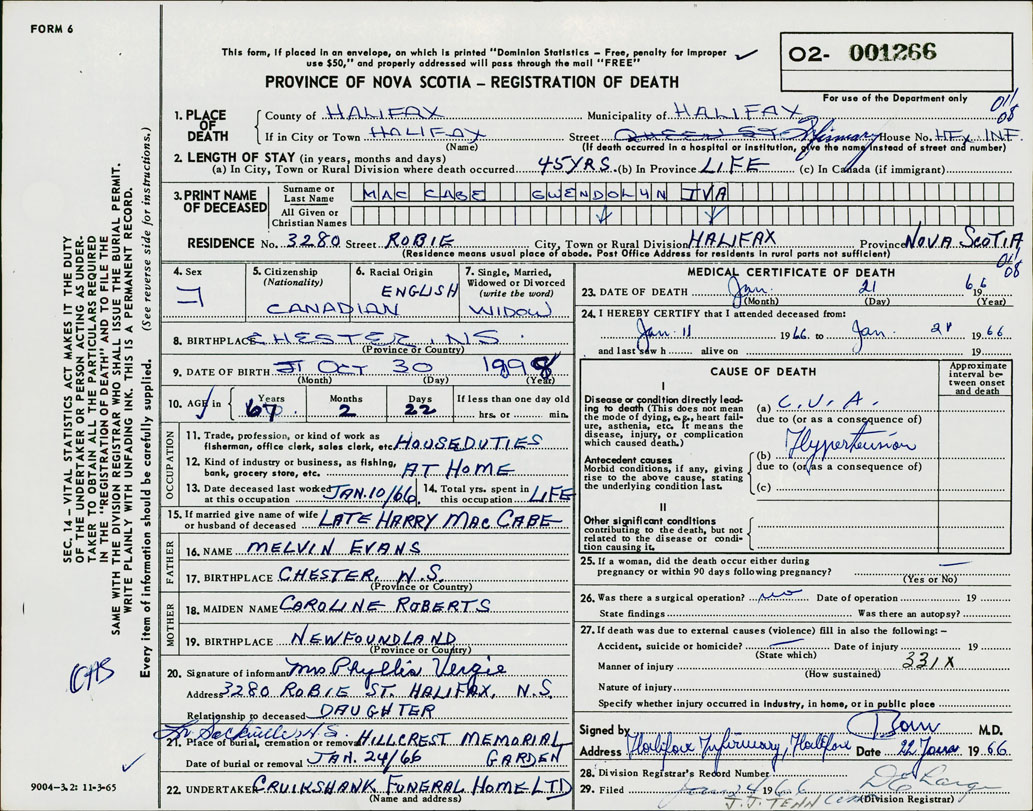 FORM 6
This form, if placed in an envelope, on which is printed "Dominion Statistics – Free, penalty for improper
use $50," and properly addressed will pass through the mail "FREE"
PROVINCE OF NOVA SCOTIA – REGISTRATION OF DEATH
O2- 001266
For use of the Department only
1. PLACE OF DEATH
County of HALIFAX Municipality of HALIFAX
If in City or Town HALIFAX Street QUEEN ST Infirmary House No. HFX INF
(Name) (If death occurred in a hospital or institution, give the name instead of street and number)
2. LENGTH OF STAY (in years, months and days)
(a) In City, Town or Rural Division where death occurred 45 YRS. (b) In Province LIFE (c) In Canada (if immigrant)
3. PRINT NAME OF DECEASED
Surname or Last Name MAC CABE GWENDOLYN IVA
All Given or Christian Names
RESIDENCE No. 3280 Street ROBIE City, Town or Rural Division HALIFAX Province NOVA SCOTIA
(Residence means usual place of abode. Post Office Address for residents in rural parts not sufficient)
011
08
011
08
4. Sex F
5. Citizenship (Nationality) CANADIAN
6. Racial Origin ENGLISH
7. Single, Married, Widowed or Divorced (write the word) WIDOW
8. BIRTHPLACE CHESTER N.S.
(Province or Country)
9. DATE OF BIRTH OCT 30 1898
(Month) (Day) (Year)
10. AGE in Years 67 Months 2 Days 22 If less than one day old hrs. or min.
OCCUPATION
11. Trade, profession, or kind of work as fisherman, office clerk, sales clerk, etc. HOUSE DUTIES
12. Kind of industry or business, as fishing, bank, grocery store, etc. AT HOME
13. Date deceased last worked at this occupation JAN. 10/66 14. Total yrs. spent in this occupation LIFE
15. If married give name of wife or husband of deceased LATE HARRY MAC CABE
FATHER
16. NAME MELVIN EVANS
17. BIRTHPLACE CHESTER, N.S.
(Province or Country)
MOTHER
18. MAIDEN NAME CAROLINE ROBERTS
19. BIRTHPLACE NEWFOUNDLAND
(Province or Country)
20. Signature of informant Mrs Phyllis Vergie
Address 3280 ROBIE ST. HALIFAX, N.S.
Relationship to deceased DAUGHTER
Sackville N.S.
21. Place of burial, cremation or removal HILLCREST MEMORIAL GARDEN
Date of burial or removal JAN. 24/66
22. UNDERTAKER CRUIKSHANK FUNERAL HOME LTD
(Name and address)
MEDICAL CERTIFICATE OF DEATH
23. DATE OF DEATH Jan. 21 1966
(Month) (Day) (Year)
24. I HEREBY CERTIFY that I attended deceased from:
Jan. 11 1966 to Jan. 21 1966
and last saw h alive on 19
CAUSE OF DEATH
Approximate interval between onset and death
I
Disease or condition directly leading to death (This does not mean the mode of dying, e.g., heart failure, asthenia, etc. It means the disease, injury, or complication which caused death.)
(a) C.V.A.
due to (or as a consequence of)
Hypertension
Antecedent causes
Morbid conditions, if any, giving rise to the above cause, stating the underlying condition last.
(b)
due to (or as a consequence of)
(c)
II
Other significant conditions contributing to the death, but not related to the disease or condition causing it.
25. If a woman, did the death occur either during pregnancy or within 90 days following pregnancy?
(Yes or No)
26. Was there a surgical operation? no Date of operation 19
State findings Was there an autopsy?
27. If death was due to external causes (violence) fill in also the following: –
Accident, suicide or homicide? Date of injury 19
(State which)
Manner of injury 331X
(How sustained)
Nature of injury
Specify whether injury occurred in industry, in home, or in public place
Signed by M.D.
Address Halifax Infirmary, Halifax Date 22 Janr. 1966
28. Division Registrar's Record Number
29. Filed Jan 24 1966
(Division Registrar)
SEC. 14 – VITAL STATISTICS ACT MAKES IT THE DUTY
OF THE UNDERTAKER OR PERSON ACTING AS UNDERTAKER
TO OBTAIN ALL THE PARTICULARS REQUIRED
IN THE "REGISTRATION OF DEATH" AND TO FILE THE
SAME WITH THE DIVISION REGISTRAR WHO SHALL ISSUE THE BURIAL PERMIT.
WRITE PLAINLY WITH UNFADING INK. THIS IS A PERMANENT RECORD.
Every item of information should be carefully supplied. (See reverse side for instructions.)
9004–3.2: 11-3-65